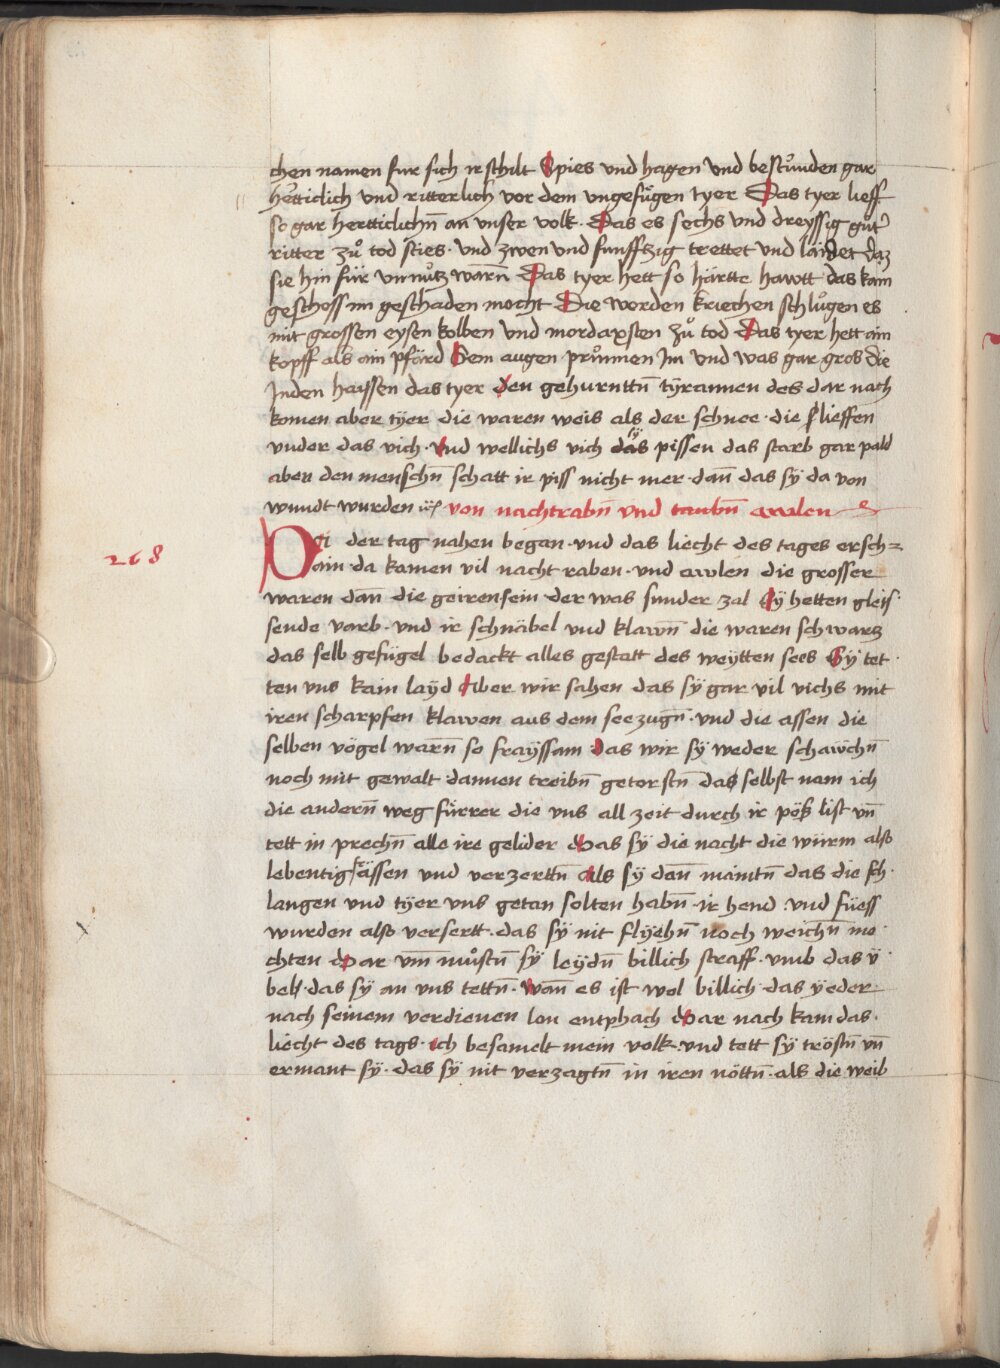 chen namen fur sich ir schilt Spies vnd hagen vnd bestůnden gar
herticlich vnd ritterlich vor dem vngefügen tyer Das tyer lieff
so gar herticlichn̄ an vnser volk · Das es sechs vnd dreyssig gůt
ritter zů tod sties · vnd zwen vnd funfftzig trettet vnd laidet daz
sie hin für vnnutz warn̄ Das tyer hett so härtte hawtt das kain
geschoss im geschaden mocht Die worden kriechen schlůgen es
mit grossen eysen kolben vnd mordaxsten zů tod Das tyer hett ain
kopff als ain pfärd Sein augen prunnen Im vnd was gar gros die
Inden hayssen das tyer den gehurnttn̄ tyrannen des dar nach
komen aber tyer die waren weis als der schnee · die slieffen
vnder das vich · vnd wellichs vich sÿ pissen das starb gar pald
aber den menschn̄ schatt ir piss nicht mer · dan̄ das sÿ da von
wundt wurden von nachtrabn̄ vnd tawbn̄ awlen
268
Pei der tag nahen began · vnd das liecht des tages ersch=
ain · da kamen vil nacht raben · vnd awlen die grosser
waren dan̄ die geiren sein der was sunder zal Sÿ hetten gleis
sende varb · vnd ir schnäbel vnd klawn̄ die waren schwarz
das selb gefügel bedackt alles gestatt des weytten sees Sÿ tet
ten vns kain layd Aber wir sahen das sÿ gar vil vichs mit
iren scharpfen klawen aus dem see zugn̄ · vnd die assen die
selben vögel warn̄ so frayssam das wir sÿ weder schawchn̄
noch mit gewalt dannen treibn̄ getorstn̄ das selbst nam ich
die andern̄ weg fürrer die vns all zeit durch ir pöß list vn̄
tett in prechn̄ alle ire gelider das sÿ die nacht die würm also
lebentig frässen vnd verzerttn̄ als sÿ dan̄ maintn̄ das die sch
langen vnd tyer vns getan solten habn̄ · ir hend vnd füess
wurden also versertt · das sÿ nit flÿehn̄ noch weichn̄ mo
chten Dar vm můstn̄ sÿ leydn̄ billich straff · vmb das v
bel · das sÿ an vns tettn̄ · wan̄ es ist wol billich das yeder
nach seinem verdienen lon entphach Dar nach kam das
liecht des tags · ich besamelt mein volk · vnd tett sÿ tröstn̄ vn̄
ermant sÿ · das sÿ nit verzagtn̄ in iren nöttn̄ · als die weib